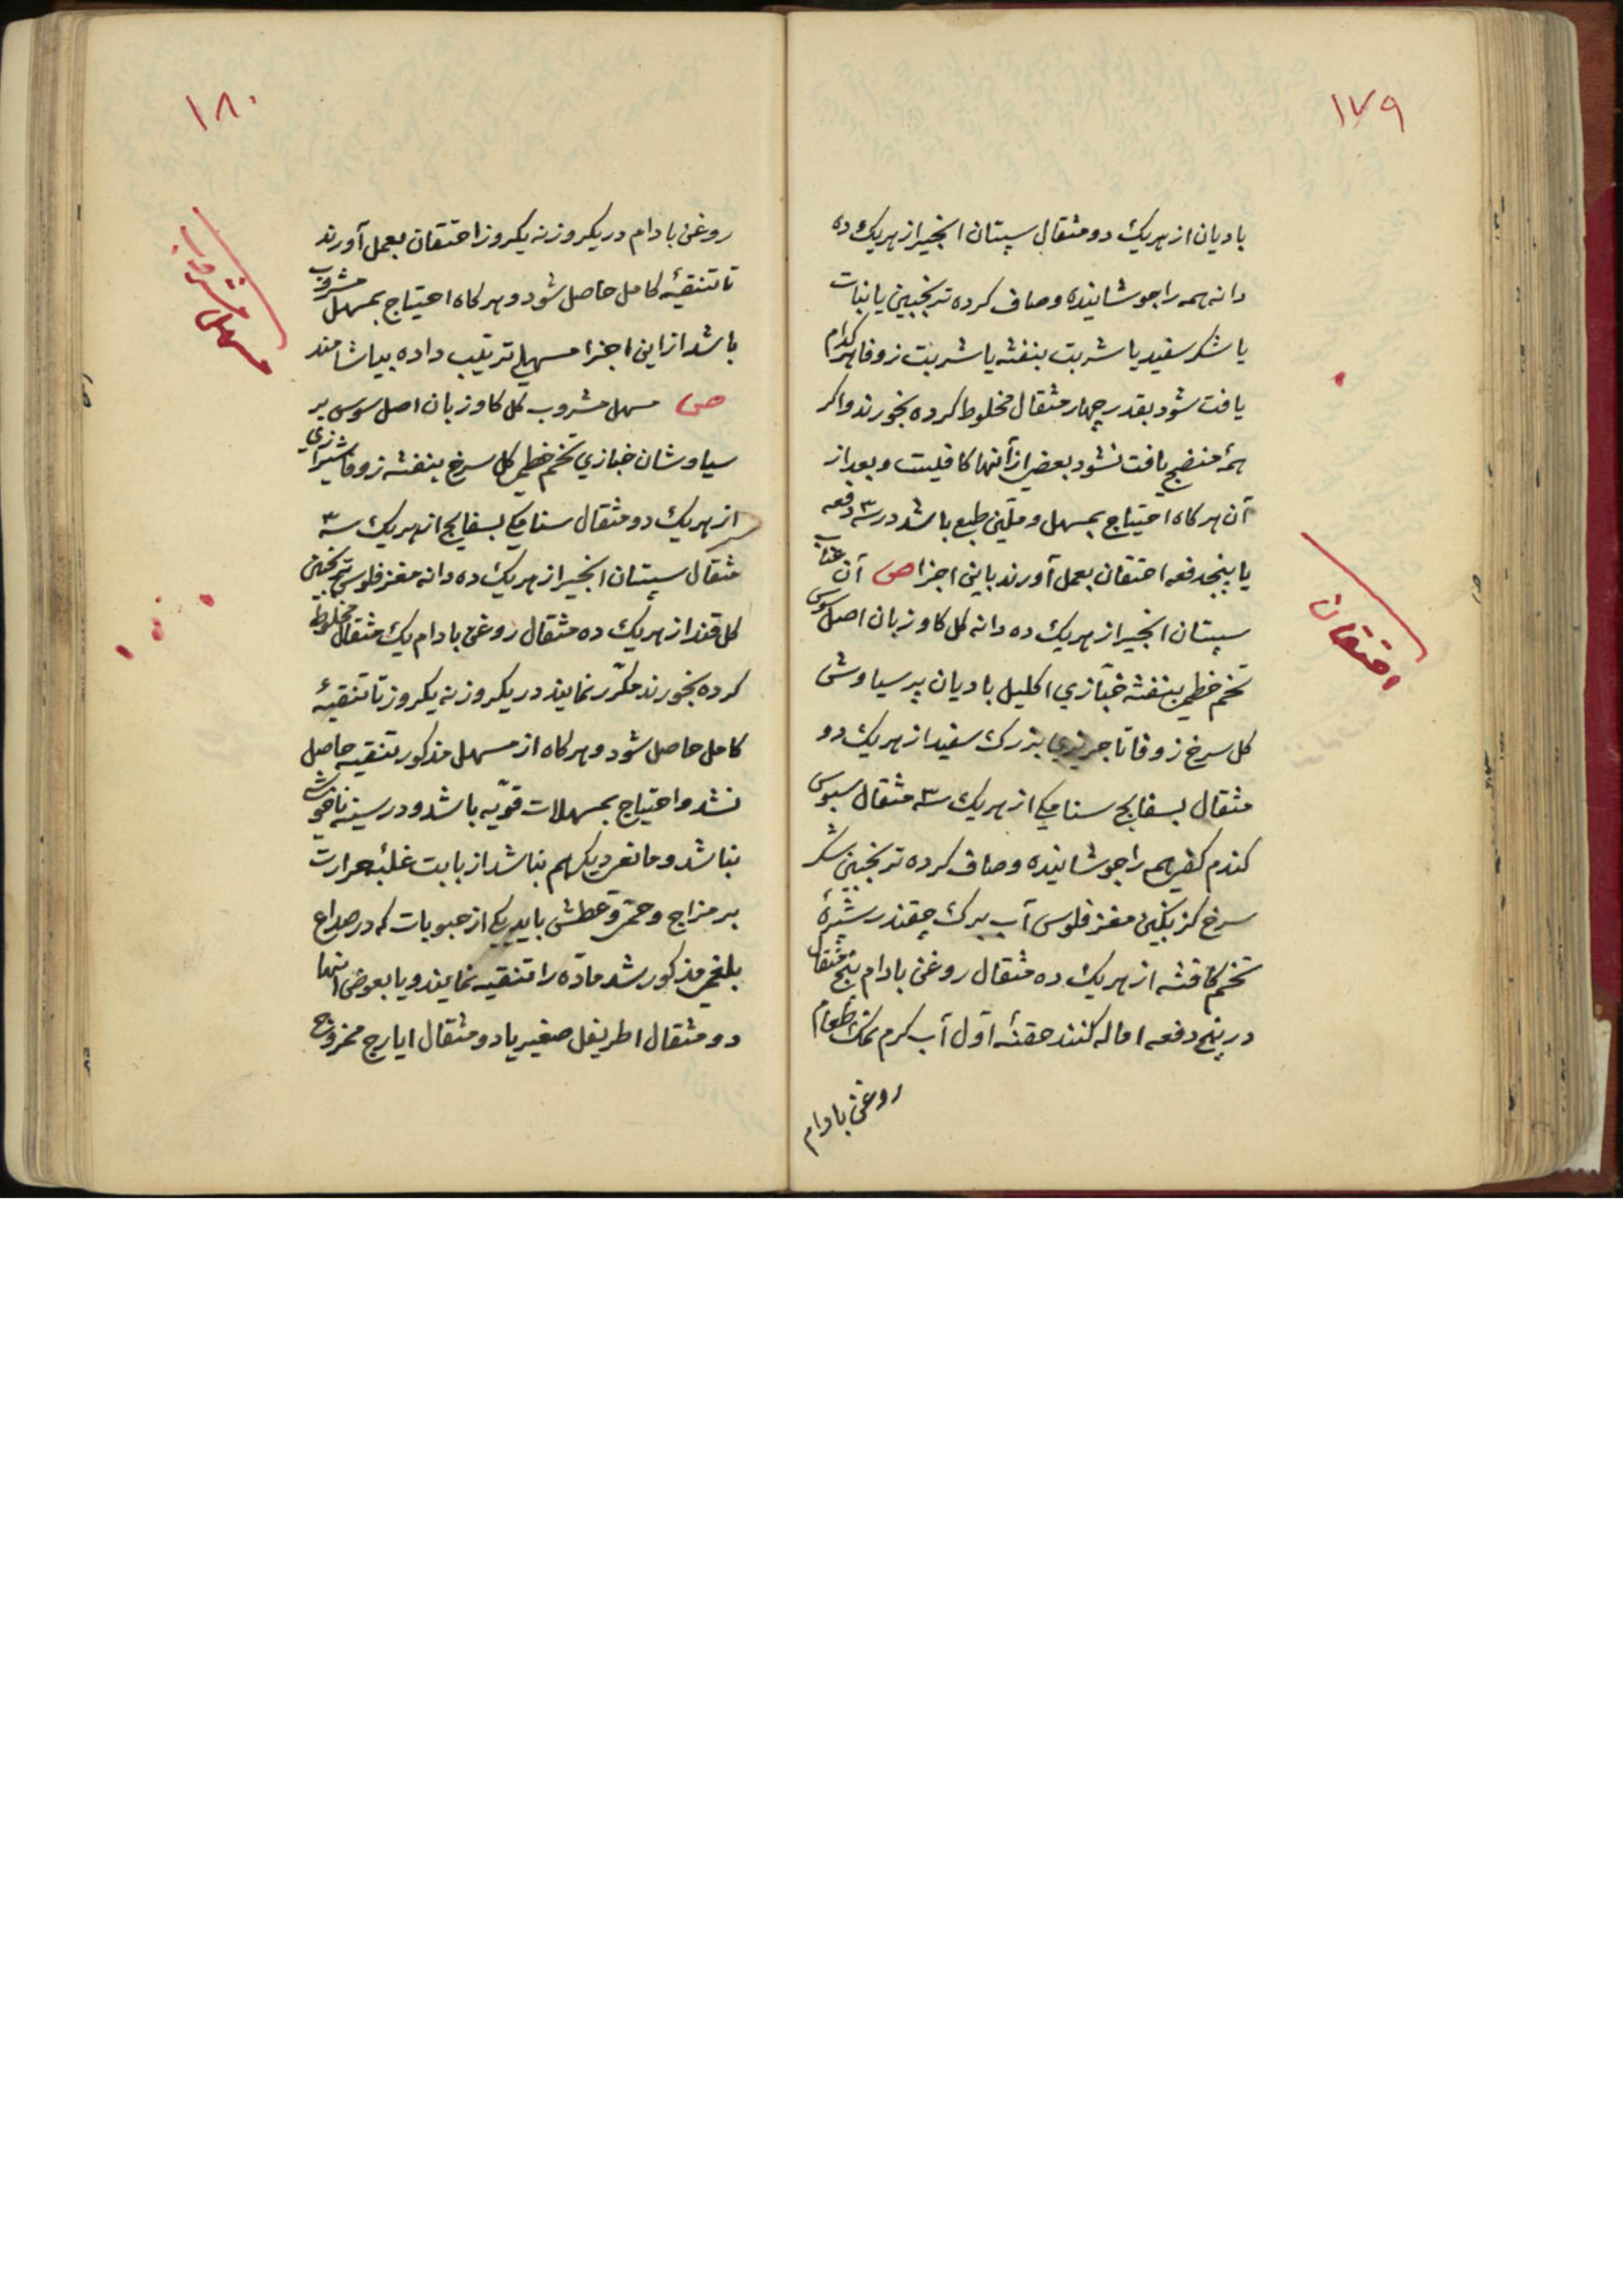 ۱۷۹
بادیان از هریک دو مثقال سپستان انجیر از هریک ده
دانه همه را جوشانیده و صاف کرده ترنجبین یا نبات
یا شکر سفید یا شربت بنفشه یا شربت زوفا هرکدام
یافت شود بقدر چهار مثقال مخلوط کرده بخورند و اکر
همهٔ منضج یافت نشود بعضی از آنها کافیست و بعد از
آن هرکاه احتیاج بمسهل و ملین طبع باشد در سه ۳ دفعه
یا پنجدفعه احتقان بعمل آورند باین اجزا ص آن عناب
سپستان انجیر از هریک ده دانه کل کاو زبان اصل سوس
تخم خطمی بنفشه خبّازی اکلیل بادیان پرسیاوش
کل سرخ زوفا تاجریزی بزرک سفید از هریک دو
مثقال بسفایج سنامکی از هریک سه ۳ مثقال سبوس
کندم کفی همه را جوشانیده و صاف کرده ترنجبین شکر
سرخ کزنکبین مغز فلوس آب برک چقندر شیرهٔ
تخم کافشه از هریک ده مثقال روغن بادام پنج مثقال
در پنج دفعه اماله کنند حقنهٔ اوّل آب کرم نمک طعام
روغن بادام
احتقان
۱۸۰
روغن بادام در یکروز نه یکروز احتقان بعمل آورند
تا تنقیهٔ کامل حاصل شود و هرکاه احتیاج بمسهل مشروب
باشد از این اجزا مسهلی ترتیب داده بیاشامند
ص مسهل مشروب کل کاو زبان اصل سوس پر
سیاوشان خبازی تخم خطمی کل سرخ بنفشه زوفا شیرازی
از هریک دو مثقال سنامکی بسفایج از هریک سه ۳
مثقال سپستان انجیر از هریک ده دانه مغز فلوس ترنجبین
کل قند از هریک ده مثقال روغن بادام یک مثقال مخلوط
کرده بخورند مکرّر نمایند در یکروز نه یکروز تا تنقیهٔ
کامل حاصل شود و هرکاه از مسهل مذکور تنقیه حاصل
نشد و احتیاج بمسهلات قویّه باشد و در سینه ناخوشی
نباشد و مانع دیکر هم نباشد از بابت غلبهٔ حرارت
بر مزاج و حمّی و عطش باید یکی از حبوبات که در صداع
بلغمی مذکور شد مادّه را تنقیه نمایند و یا بعوض آنها
دو مثقال اطریفل صغیر یا دو مثقال ایارج ممزوج
مسهل مشروب